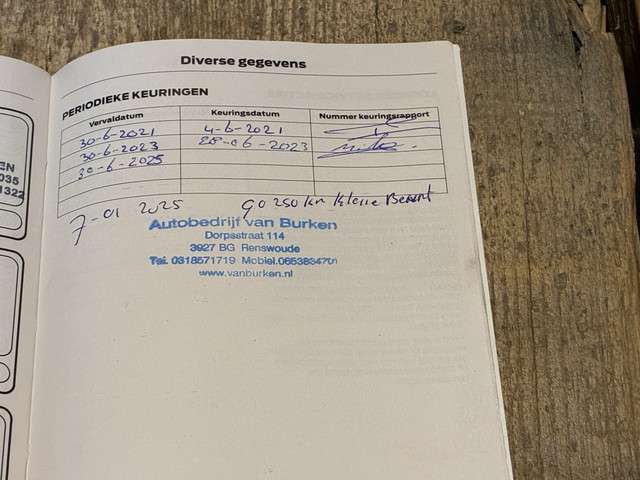 Diverse gegevens
PERIODIEKE KEURINGEN
Vervaldatum Keuringsdatum Nummer keuringsrapport
30-6-2021 4-6-2021
30-6-2023 28-06-2023
30-6-2025
7-01 2025 90 250 km kleine Beurt
Autobedrijf van Burken
Dorpsstraat 114
3927 BG Renswoude
Tel. 0318571719 Mobiel.
www.vanburken.nl
EN
035
1322